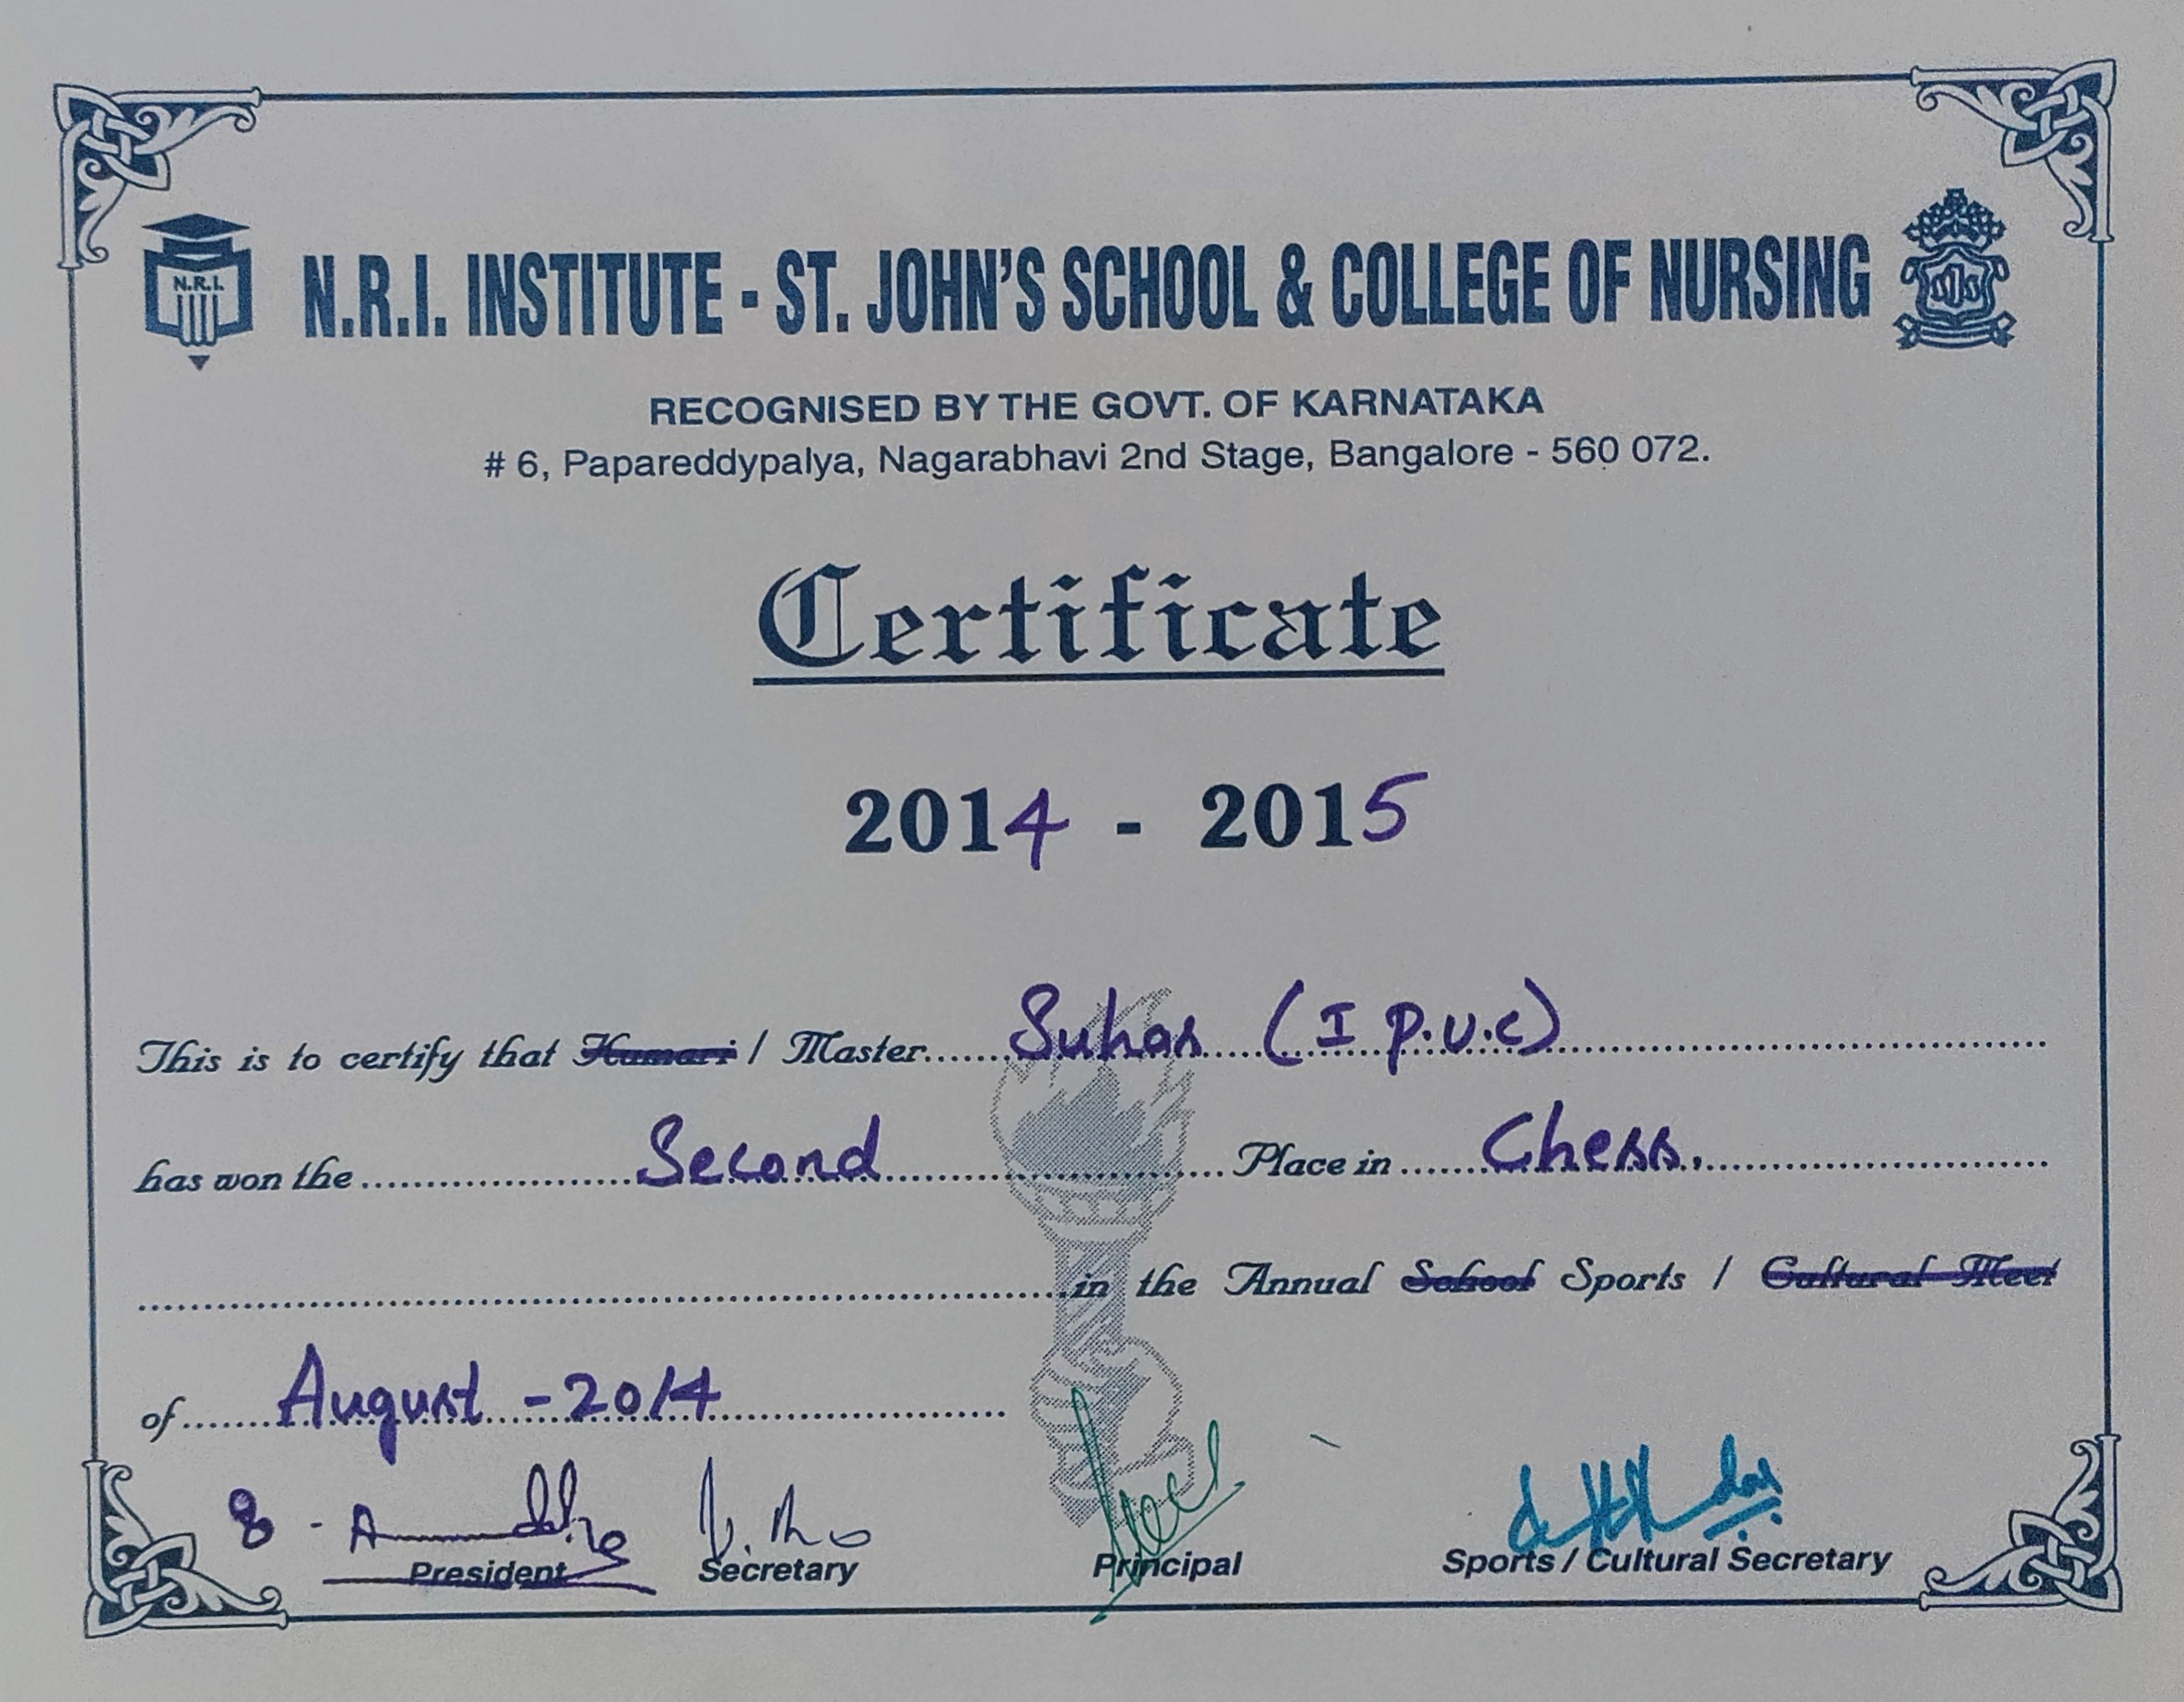 N.R.I.
N.R.I. INSTITUTE - ST. JOHN'S SCHOOL & COLLEGE OF NURSING
RECOGNISED BY THE GOVT. OF KARNATAKA
# 6, Papareddypalya, Nagarabhavi 2nd Stage, Bangalore - 560 072.
Certificate
2014 - 2015
This is to certify that Kumari / Master........Suhas (I P.U.C)
has won the........Second........Place in........Chess.
in the Annual School Sports / Cultural Meet
of........August - 2014
President Secretary Principal Sports / Cultural Secretary